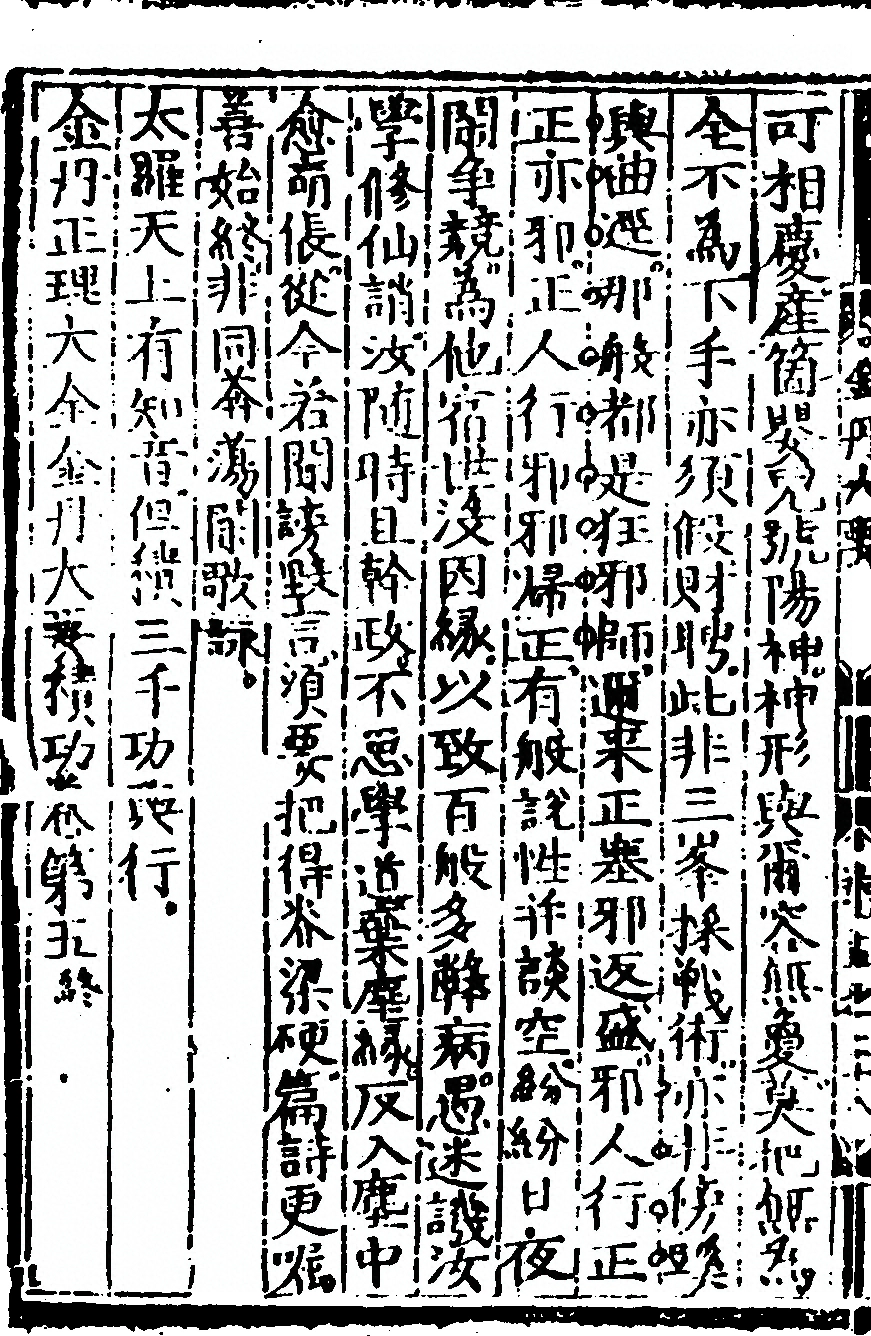 可相慶產箇嬰兒號陽神神形與爾容無異莫把無為
全不為下手亦須假財聘此非三峯採戰術亦非傍
與曲逕那般都是狂邪師邇來正塞邪返盛邪人行正
正亦邪正人行邪邪歸正有般說性并談空紛紛日夜
鬧爭競為他宿世沒因緣以致百般多難病愚迷譏汝
學修仙誚汝隨時且幹政不思學道棄塵緣反入塵中
愈甚倀從今若聞謗毀言須要把得脊梁硬篇詩更囑
善始終非同莽蕩閑歌詠
太羅天上有知音但積三千功行
金丹正理大全金丹大要積功卷第五終
金丹大要